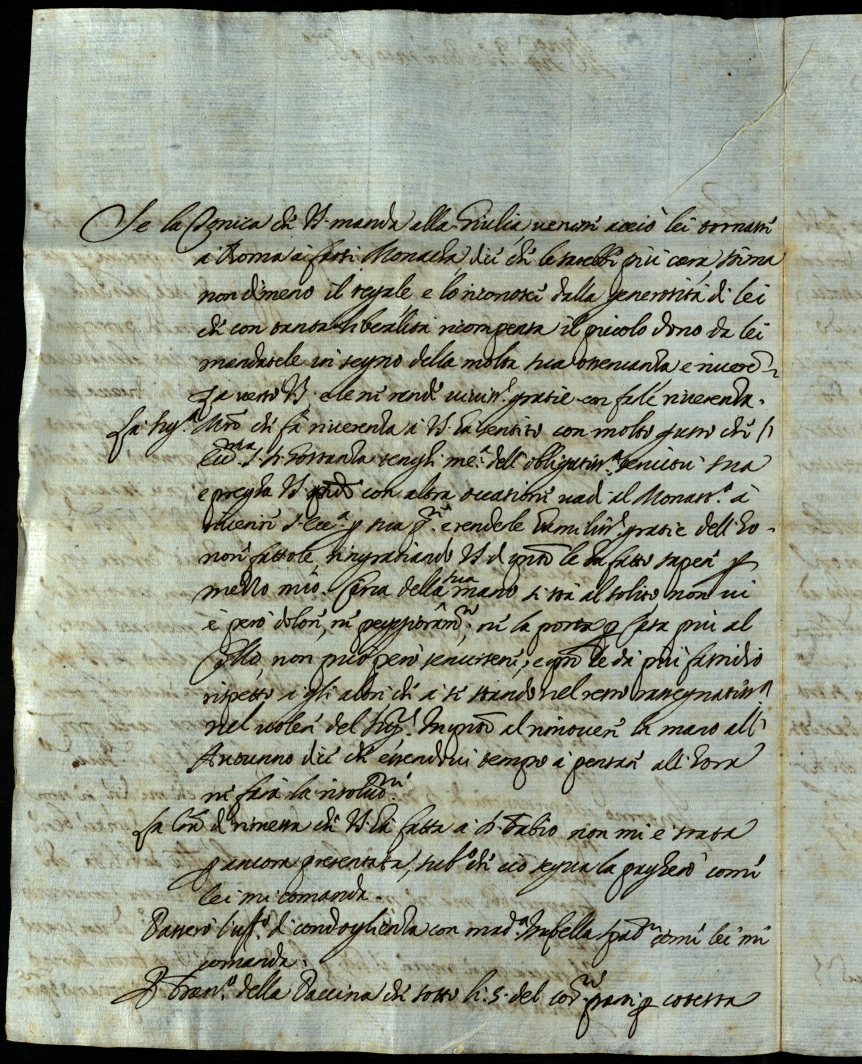 Se la Conica che V.S. manda alla Giulia venissi acciò lei tornassi
a Roma a farsi Monacha, dice che le sarebbe più cara, stima
non dimeno il regale, e lo riconosce dalla generosità di lei
che con tanta liberalità ricompensa il piccolo dono da lei
mandatele in segno della molta sua osservanza e riveren-
za verso V.S. e le ne rende viviss.e gratie con farle riverenza.
La Sig.a che fa riverenza a V.S. ha sentito con molto gusto che l'
Ecc.ma S.ra tenghi me.a dell'obligatiss.a servitù sua
e prega V.S. q.do con altra occasione vad al Monast.o a
riverire S. Ecc.a p sua p.te e rendele humiliss.e gratie dell'ho-
nore fattole, ringratiando V.S. d q.nto le ha fatto sapere p
mezzo mio. Circa della sua mano si stà al solito non vi
è però dolore, nè peggioram.to, nè la porta p Casa più al
Collo, non può però servirsene, e q.sto le dà più fastidio
rispetto a gli altri che a se stando nel resto rassegnatiss.a
nel volere del Sig.re In q.nto al rimovere la mano all'
Autunno dice che essendovi tempo a pensare all'hora
ne farà la risolut.ne
La l'ra d rimessa che V.S. ha fatta a S. Fabio non mi è stata
p ancora presentata, sub.o che ciò segua la pagherò come
lei mi comanda.
Passerò l'uff.o di condoglienza con mad.a Isabella come lei mi
comanda.
della Paccina che sotto li 5. del cor.te p cotesta